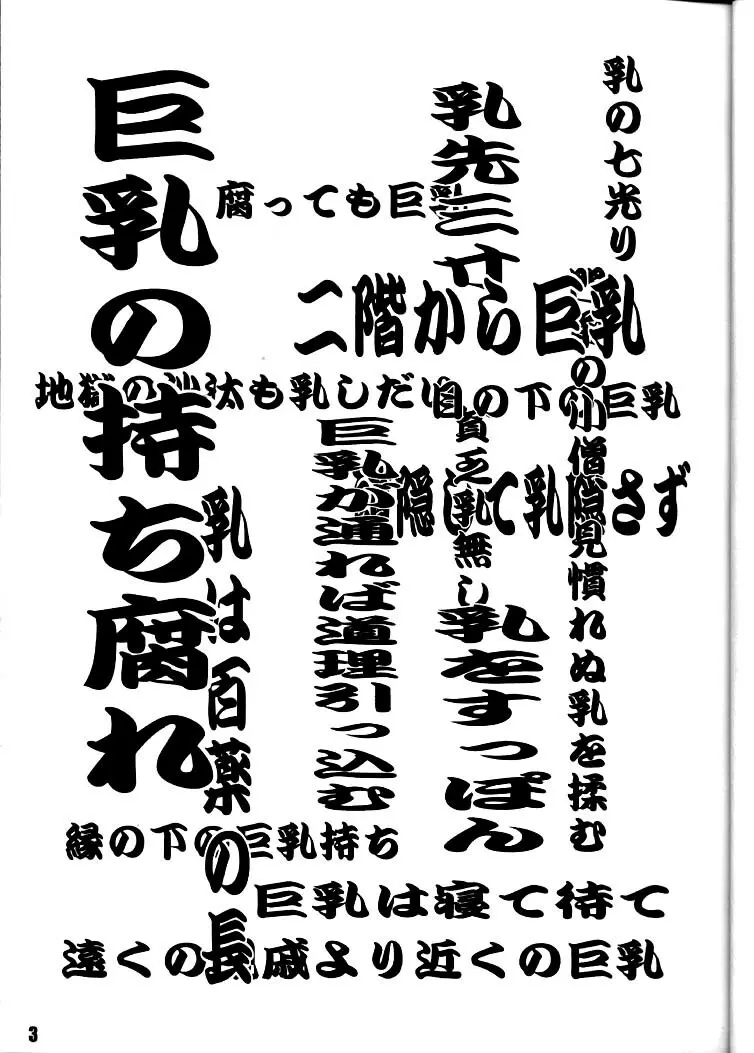 乳の七光り
乳先三寸
腐っても巨乳
二階から巨乳
地獄の沙汰も乳しだい
目の下の巨乳
巨乳の持ち腐れ
隠して乳隠さず
貧乏乳無し
の小僧見慣れぬ乳を揉む
巨乳が通れば道理引っ込む
乳をすっぽん
乳は百薬の長
縁の下の巨乳持ち
巨乳は寝て待て
遠くの親戚より近くの巨乳
3